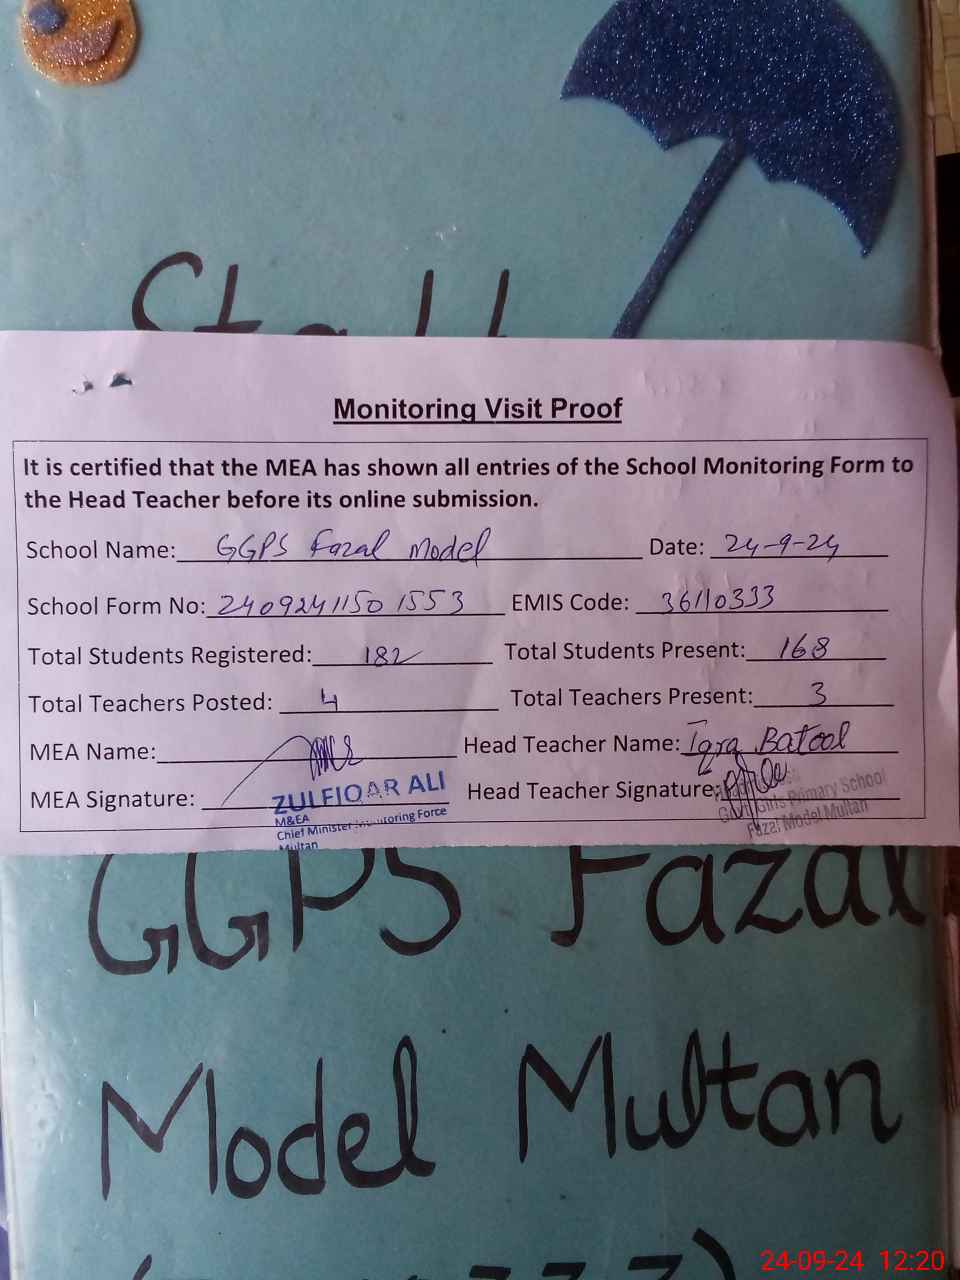 Staff
Monitoring Visit Proof
It is certified that the MEA has shown all entries of the School Monitoring Form to
the Head Teacher before its online submission.
School Name: GGPS Fazal Model Date: 24-9-24
School Form No: 24092411501553 EMIS Code: 36110333
Total Students Registered: 182 Total Students Present: 168
Total Teachers Posted: 4 Total Teachers Present: 3
MEA Name: Head Teacher Name: Iqra Batool
MEA Signature: Head Teacher Signature:
ZULFIQAR ALI
M&EA
Chief Minister Monitoring Force
Multan
Govt. Girls Primary School
Fazal Model Multan
GGPS Fazal
Model Multan
24-09-24 12:20